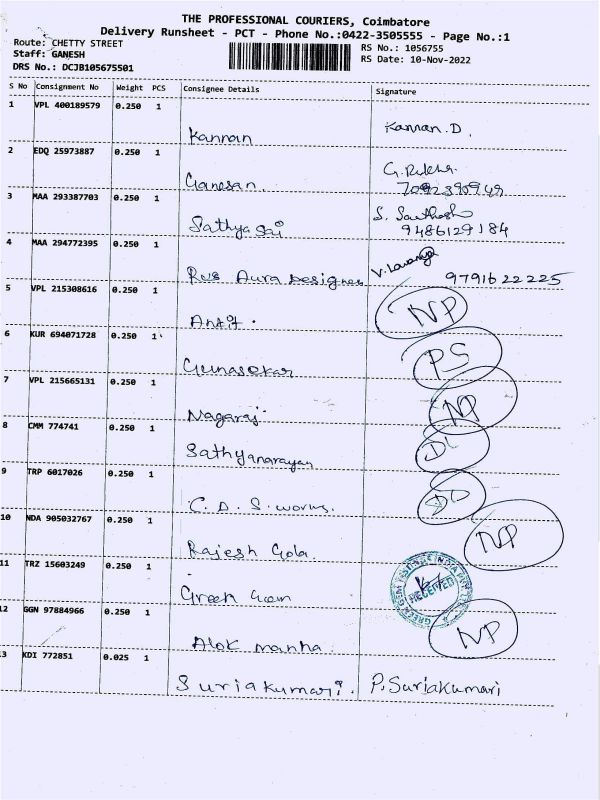 THE PROFESSIONAL COURIERS, Coimbatore
Delivery Runsheet - PCT - Phone No.:0422-3505555 - Page No.:1
Route: CHETTY STREET
Staff: GANESH
DRS No.: DCJB105675501
RS No.: 1056755
RS Date: 10-Nov-2022
S No Consignment No Weight PCS Consignee Details Signature
1 VPL 400189579 0.250 1
Kannan Kannan.D.
2 EDQ 25973887 0.250 1
Ganesan.
3 MAA 293387703 0.250 1
Sathya Sai S. Santhosh
9486129184
4 MAA 294772395 0.250 1
Aura Designer V. Lavanya 9791622225
5 VPL 215308616 0.250 1
Ankit. NP
6 KUR 694071728 0.250 1
Gunasekar PS
7 VPL 215665131 0.250 1
Nagaraj. NP
8 CMM 774741 0.250 1
Sathyanarayan DL
9 TRP 6017026 0.250 1
C. D. S. worms. DL
10 NDA 905032767 0.250 1
Rajesh Gola NP
11 TRZ 15603249 0.250 1
Green Gem RECEIVED
12 GGN 97884966 0.250 1
Alok manha NP
13 KDI 772851 0.025 1
Suriakumari. P.Suriakumari